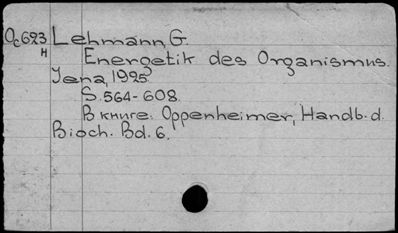 Oc623 Lehmann, G.
н
Energetik des Organismus.
Jena, 1925.
S. 564-608.
В книге: Oppenheimer, Handb. d.
Bioch. Bd. 6.